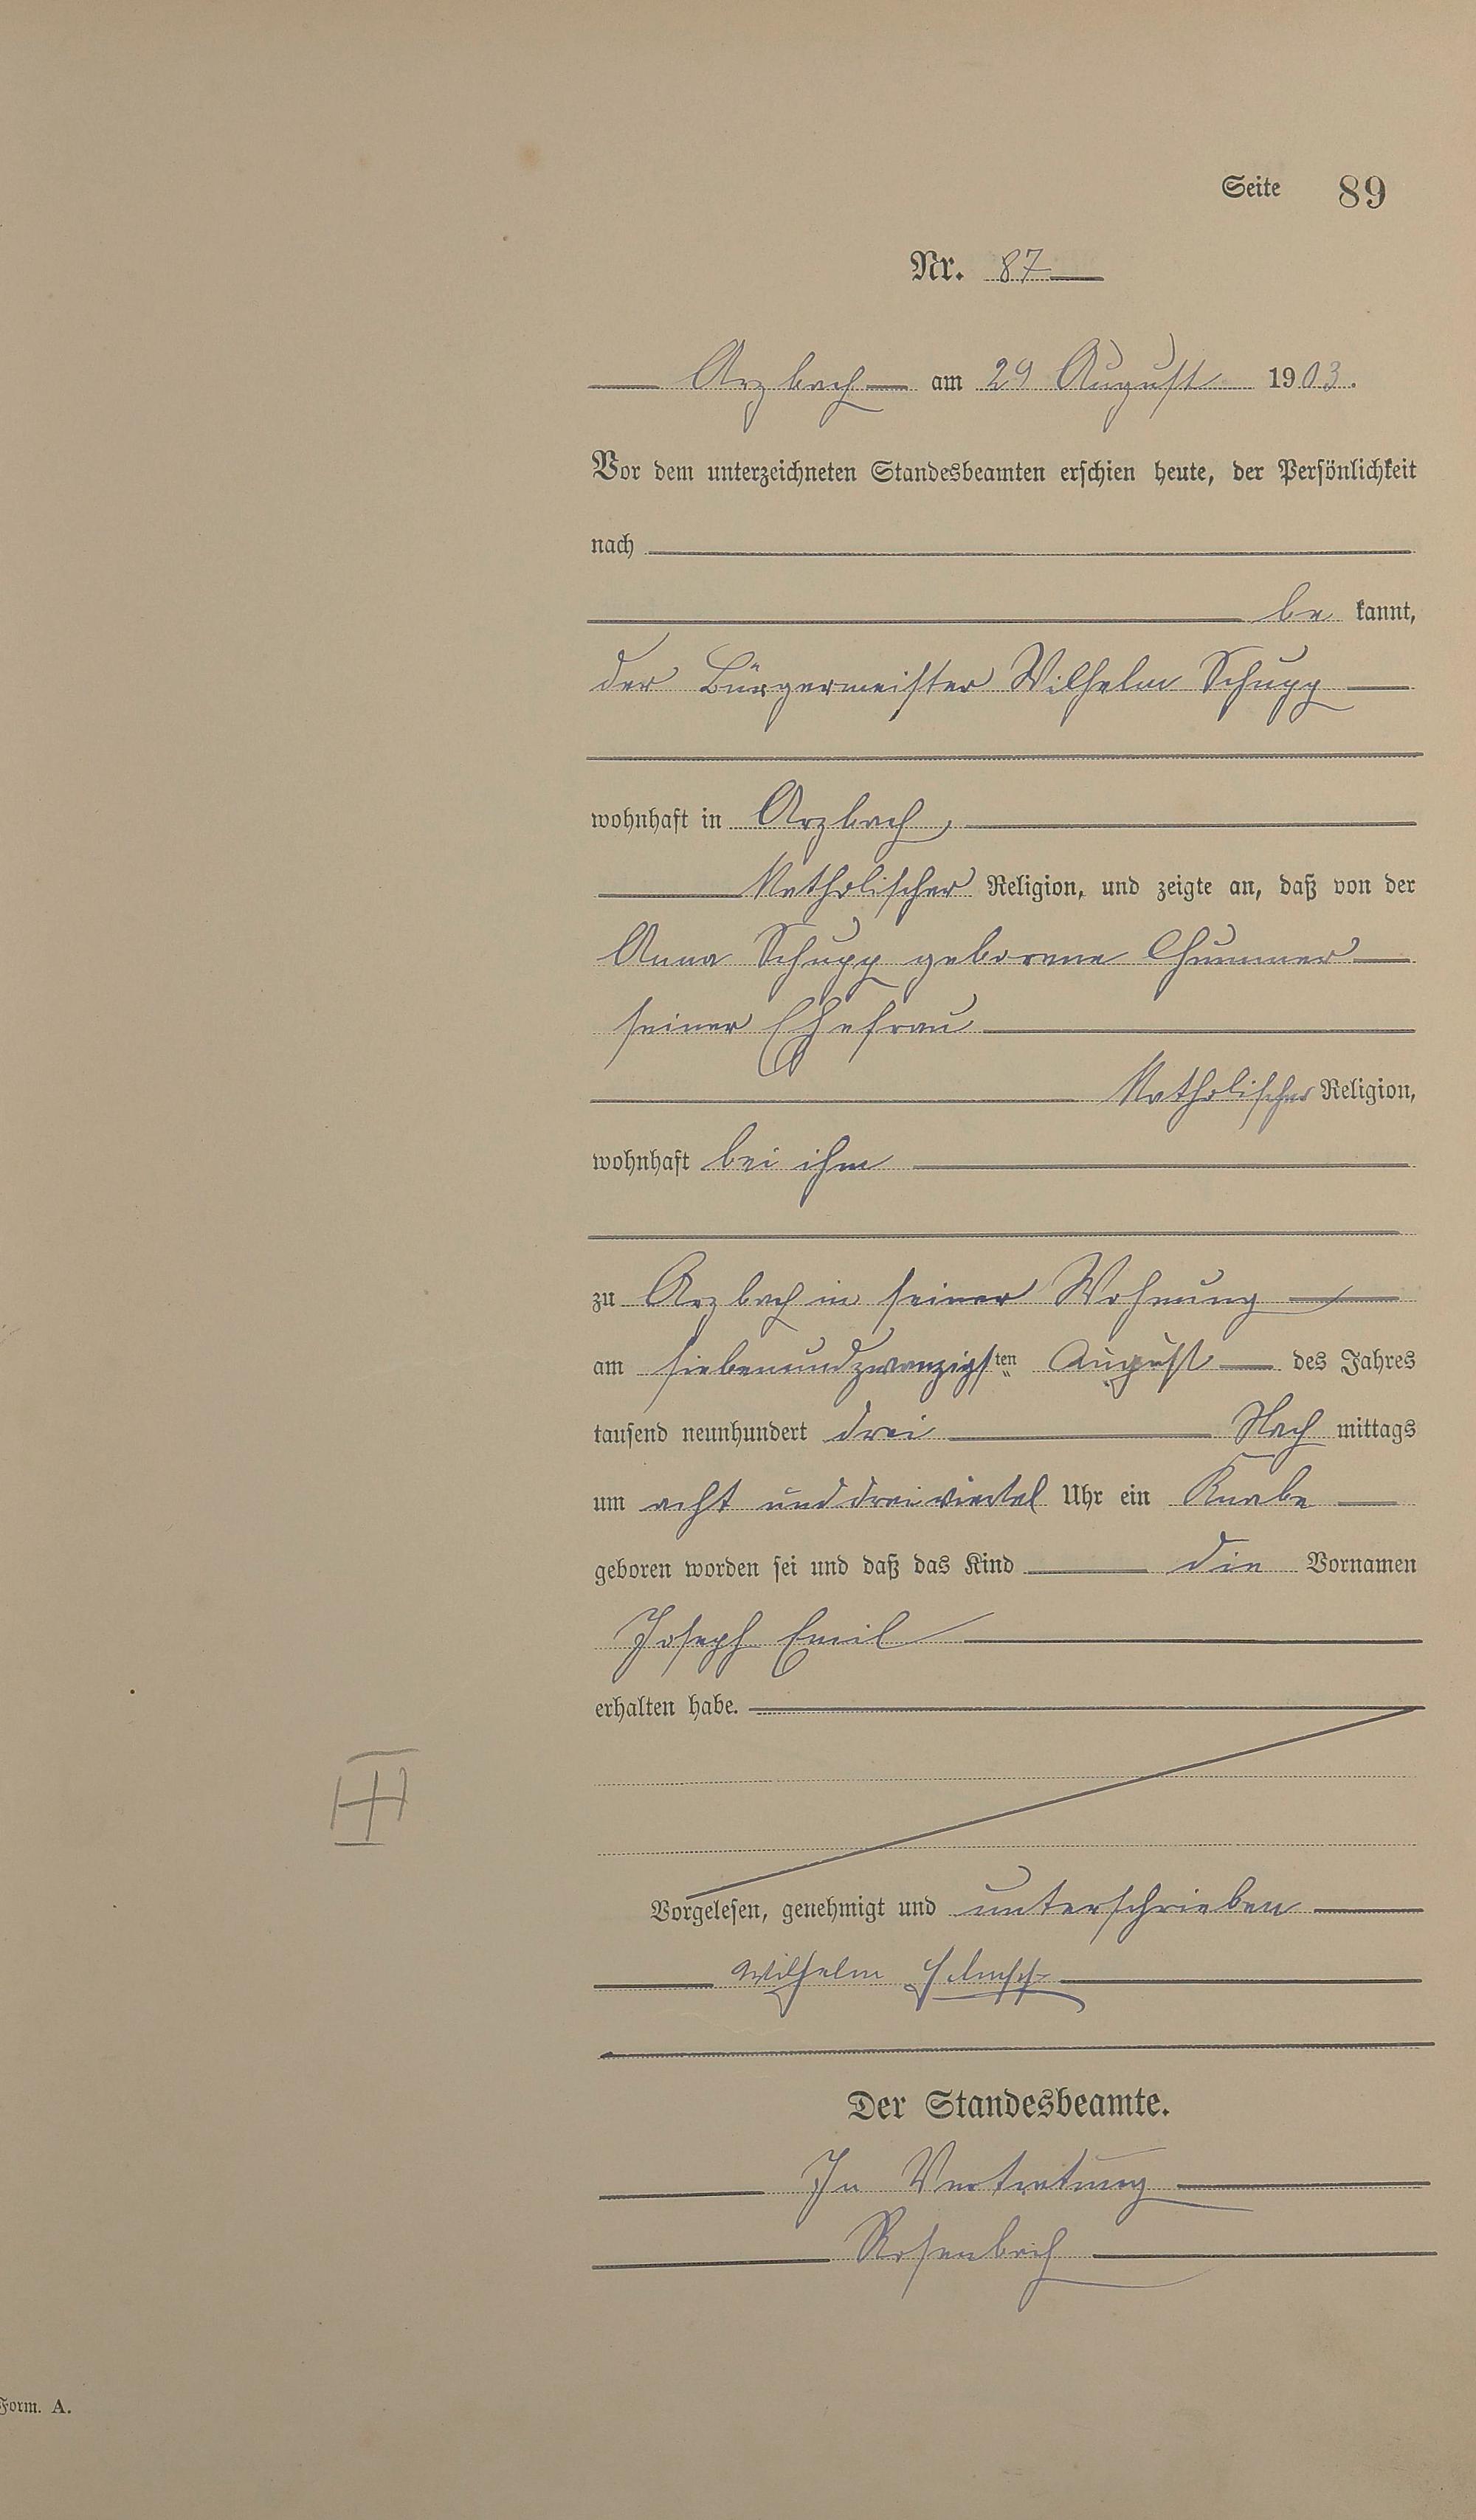 Seite 89
Nr. 87
Arzbach am 29 August 1903.
Vor dem unterzeichneten Standesbeamten erschien heute, der Persönlichkeit
nach
be kannt,
der Bürgermeister Wilhelm Schupp
wohnhaft in Arzbach,
Katholischer Religion, und zeigte an, daß von der
Anna Schupp geborene
seiner Ehefrau
Katholischer Religion,
wohnhaft bei ihm
zu Arzbach in seiner Wohnung
am siebenundzwanzigsten August des Jahres
tausend neunhundert drei Nach mittags
um acht und dreiviertel Uhr ein Knabe
geboren worden sei und daß das Kind die Vornamen
Joseph Emil
erhalten habe.
Vorgelesen, genehmigt und unterschrieben
Wilhelm Schupp
Der Standesbeamte.
In Vertretung
Rosenbach
Form. A.